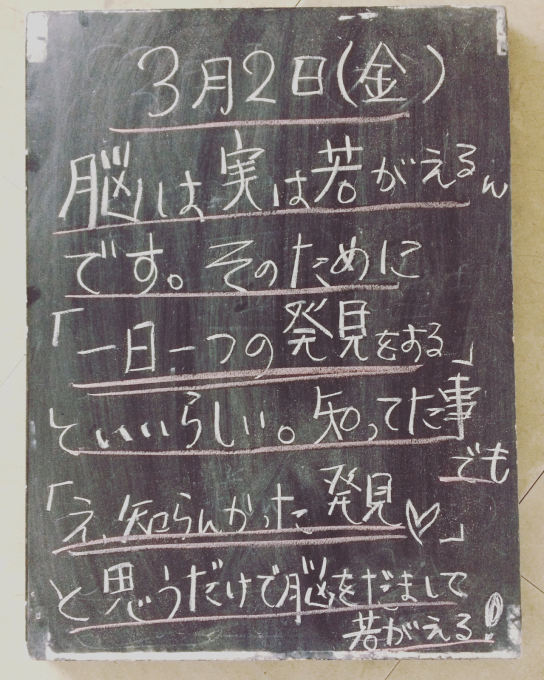 3月2日(金)
脳は実は若がえるん
です。そのために
「一日一つの発見をする」
といいらしい。知ってた事
でも
「え、知らんかった発見♡」
と思うだけで脳をだまして
若がえる!